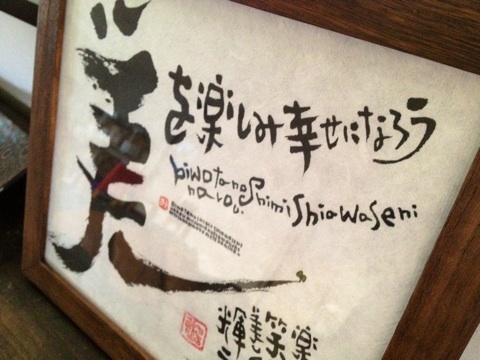 美を楽しみ幸せになろう
biwotanoshimi shiawaseni
narou
楽
笑
輝